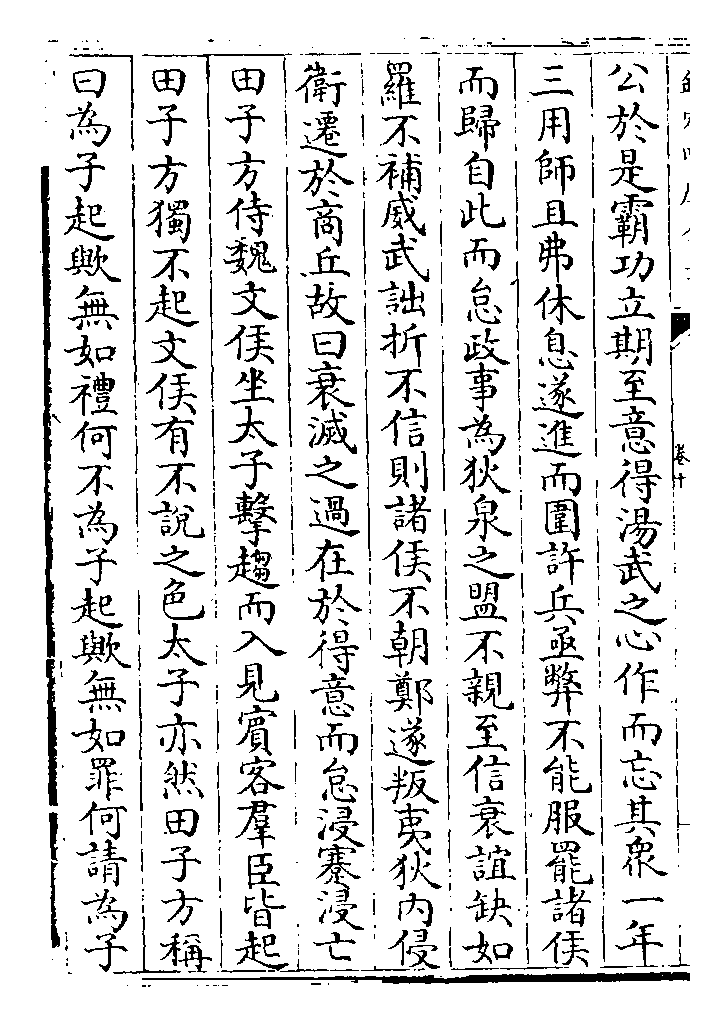 公於是霸功立期至意得湯武之心作而忘其衆一年
三用師且弗休息遂進而圍許兵亟弊不能服罷諸侯
而歸自此而怠政事為狄泉之盟不親至信衰誼缺如
羅不補威武詘折不信則諸侯不朝鄭遂叛夷狄内侵
衛遷於商丘故曰衰滅之過在於得意而怠浸蹇浸亡
田子方侍魏文侯坐太子擊趨而入見賔客羣臣皆起
田子方獨不起文侯有不說之色太子亦然田子方稱
曰為子起歟無如禮何不為子起歟無如罪何請為子
卷十